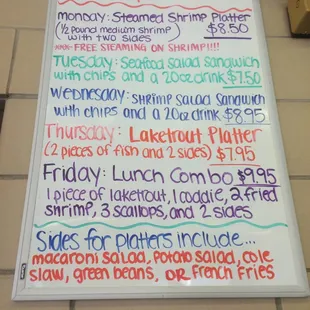 Monday: Steamed Shrimp Platter
(½ pound medium shrimp) $8.50
with two sides
NON: FREE STEAMING ON SHRIMP!!!!
Tuesday: Seafood Salad Sandwich
with chips and a 20oz drink $7.50
Wednesday: Shrimp Salad Sandwich
with chips and a 20oz drink $8.95
Thursday: Laketrout Platter
(2 pieces of fish and 2 sides) $7.95
Friday: Lunch Combo $9.95
1 piece of laketrout, 1 coddie, 2 fried
shrimp, 3 scallops, and 2 sides
Sides for platters include...
macaroni salad, potato salad, cole
slaw, green beans, OR French Fries